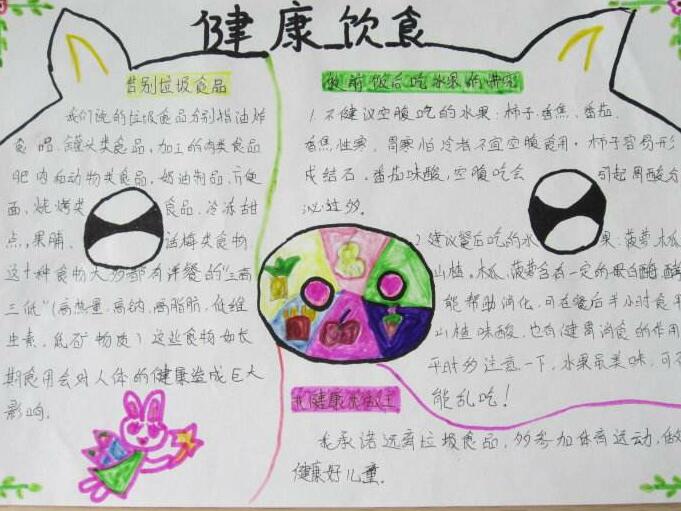 健康饮食
告别垃圾食品
我们说的垃圾食品分别指油炸
食品、罐头类食品,加工的肉类食品
肥肉和动物类食品,奶油制品,方便
面,烧烤类食品,冷冻甜
点,果脯、话梅类食物
这十种食物大多都有洋餐的“三高
三低”(高热量、高钠、高脂肪、低维
生素,低矿物质)这些食物如长
期食用会对人体的健康造成巨大
影响。
饭前饭后吃水果的讲究
1.不健议空腹吃的水果:柿子香焦、番茄,
香焦性寒,胃寒怕冷者不宜空腹食用,柿子容易形
成结石,番茄味酸,空腹吃会引起胃酸分
泌过多。
2.建议餐后吃的水果:菠萝,木瓜
山楂。木瓜、菠萝含有一定的蛋白酶,酵
能帮助消化,可在餐后半小时食用
山楂味酸,也有健胃消食的作用
平时多注意一下,水果虽美味,可不
能乱吃!
我承诺远离垃圾食品,多参加体育运动,做
健康好儿童。